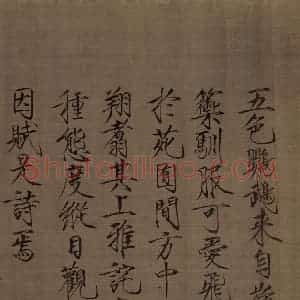 五色鸚鵡來自
籞馴服可愛飛
於苑囿間方中
翔翥其上雅詫
種態度縱目觀
因賦是詩焉